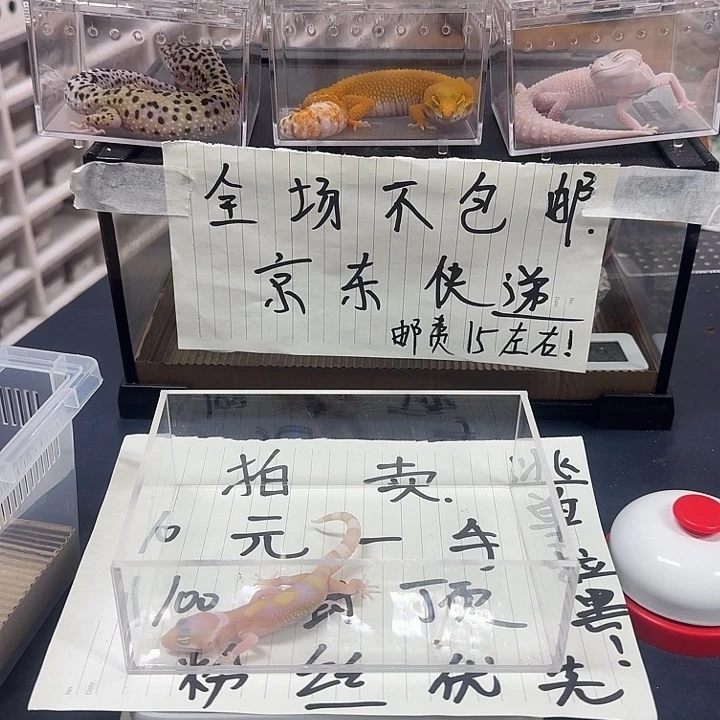 全场不包邮.
京东快递
邮费15左右!
拍卖.
10元一手
1100封顶
粉丝优先
逃单拉黑!